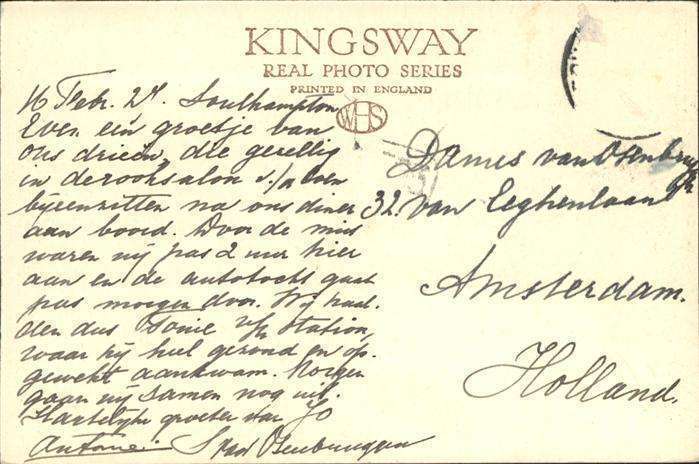 KINGSWAY
REAL PHOTO SERIES
PRINTED IN ENGLAND
WHS
16 Febr. 29. Southampton
Even een groetje van
ons drieën, die gezellig
in de rooksalon v/h
bijeenzitten na ons diner
aan boord. Door de mist
waren wij pas 2 uur hier
aan en de autotocht gaat
pas morgen door. Wij haal-
den dus Tonie v/h Station,
waar hij heel gezond en op-
gewekt aankwam. Morgen
gaan wij samen nog uit.
Hartelijke groeten van Jo
Antoine. S van Osenbruggen
Dames van Osenbruggen
32 van Eeghenlaan
Amsterdam.
Holland.